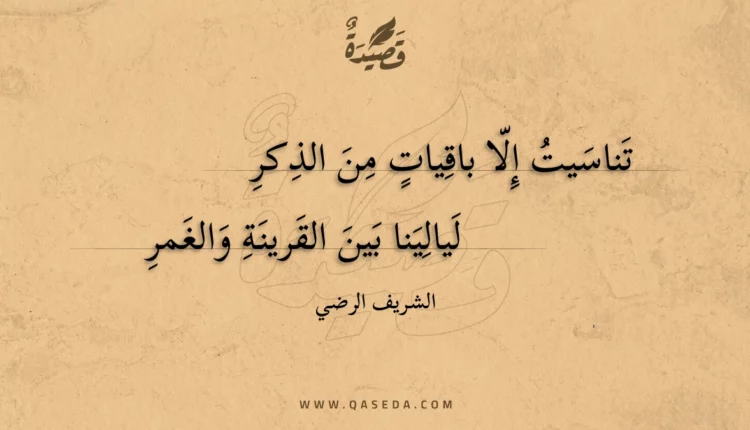 قَصِيدَةٌ
تَناسَيتُ إِلّا باقِياتٍ مِنَ الذِكرِ
لَيالِيَنا بَينَ القَرينَةِ وَالغَمرِ
الشريف الرضي
WWW.QASEDA.COM